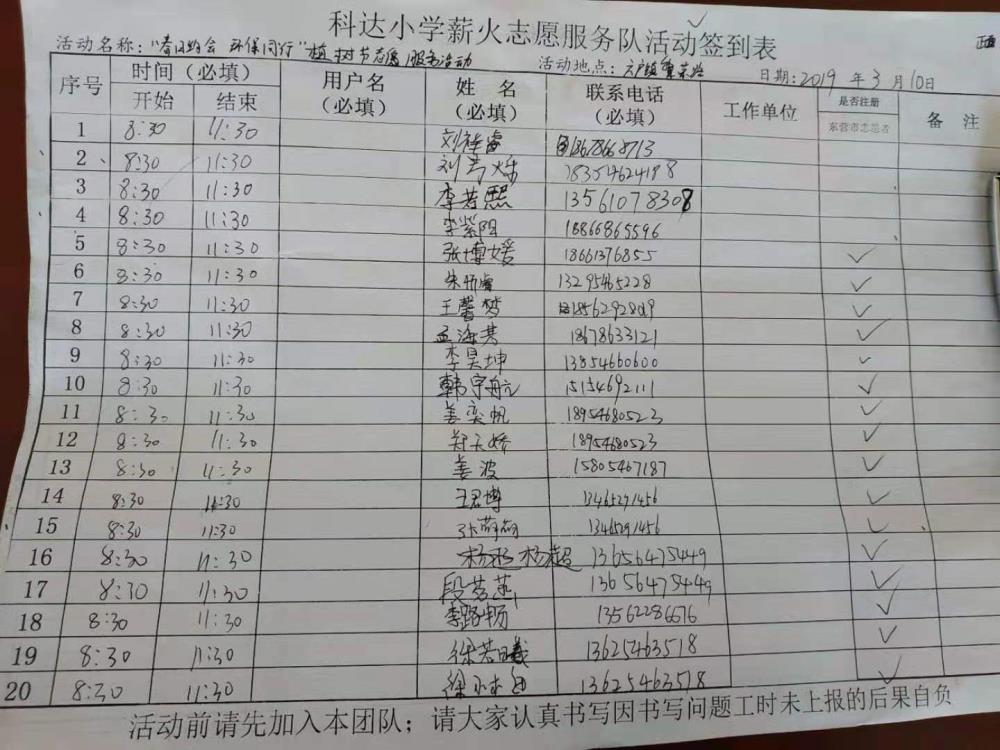 科达小学薪火志愿服务队活动签到表
活动名称：环保同行"植树节志愿服务活动 活动地点： 日期：2019 年 3 月 10日
序号 时间（必填） 用户名（必填） 姓 名（必填） 联系电话（必填） 工作单位 是否注册东营市志愿者 备 注
开始 结束
1 8:30 11:30 18678668713
2 8:30 11:30 18354624188
3 8:30 11:30 李若熙 13561078308
4 8:30 11:30 李紫阳 18866865596
5 8:30 11:30 张博媛 18661376855 ✓
6 8:30 11:30 13295465228 ✓
7 8:30 11:30 王馨梦 ✓
8 8:30 11:30 孟海芳 18678633121 ✓
9 8:30 11:30 李昊坤 13854660600 ✓
10 8:30 11:30 韩宇航 15154692111 ✓
11 8:30 11:30 姜奕帆 18954680523 ✓
12 8:30 11:30 郑天娇 18954680523 ✓
13 8:30 11:30 姜波 15805467187 ✓
14 8:30 11:30 王君博 13465291456 ✓
15 8:30 11:30 13465291456 ✓
16 8:30 11:30 杨超 13656475449 ✓
17 8:30 11:30 13656475449 ✓
18 8:30 11:30 李路畅 13562286676 ✓
19 8:30 11:30 徐若曦 13625463518 ✓
20 8:30 11:30 13625463518 ✓
活动前请先加入本团队；请大家认真书写因书写问题工时未上报的后果自负